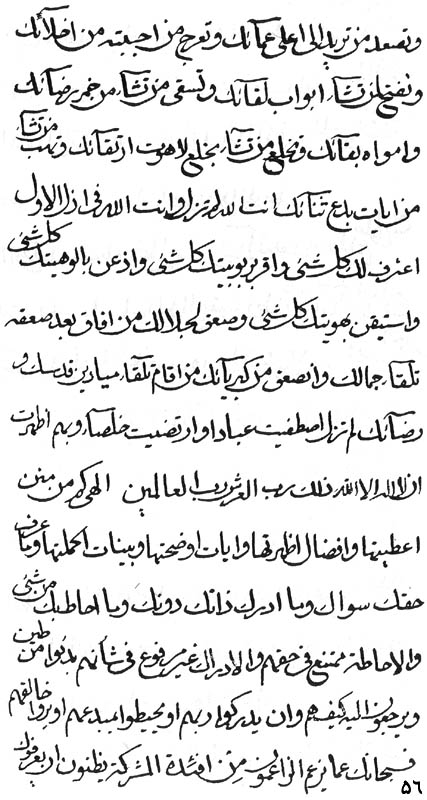 وتصعد من تريد الى اعلى عمائك وتعرج من احببته من اخلائك
وتفتح لمن تشاء ابواب لقائك وتسقى من تشاء من خمر رضائك
وامواه بقائك وتخلع من تشاء بخلع لاهوت ارتقائك وتهب من تشاء
من ايات بدع ثنائك انت الله لم تزل وانت الله فى ازل الاول
اعترف لك كل شئ واقر بربوبيتك كل شئ واذعن بالوهيتك كل شئ
واستيقن بهويتك كل شئ وصعق لجلالك من افاق بعد صعقه
تلقاء جمالك وانصعق من كبريائك من اقام تلقاء ميادين قدسك و
رضائك لم تزل اصطفيت عبادا وارتضيت خلصاء وبهم اظهرت
ان لا اله الا الله ذلك رب العرش رب العالمين الهى كم من منن
اعطيتها وافضال اظهرتها وايات اوضحتها وبينات اكملتها وما عرف
حقك سواك وما ادرك ذاتك دونك وما احاط بك من شئ
والاحاطة ممتنع فى حقهم والادراك غير مرفوع فى شأنهم بدئوا من طين
ويرجعون اليه كيف هم وان يدركوا ربهم او يحيطوا بمبدعهم او يروا خالقهم
فسبحانك عما يزعم الزاعمون من افئدة المشركة يظنون ان يعرفوك
٥٦